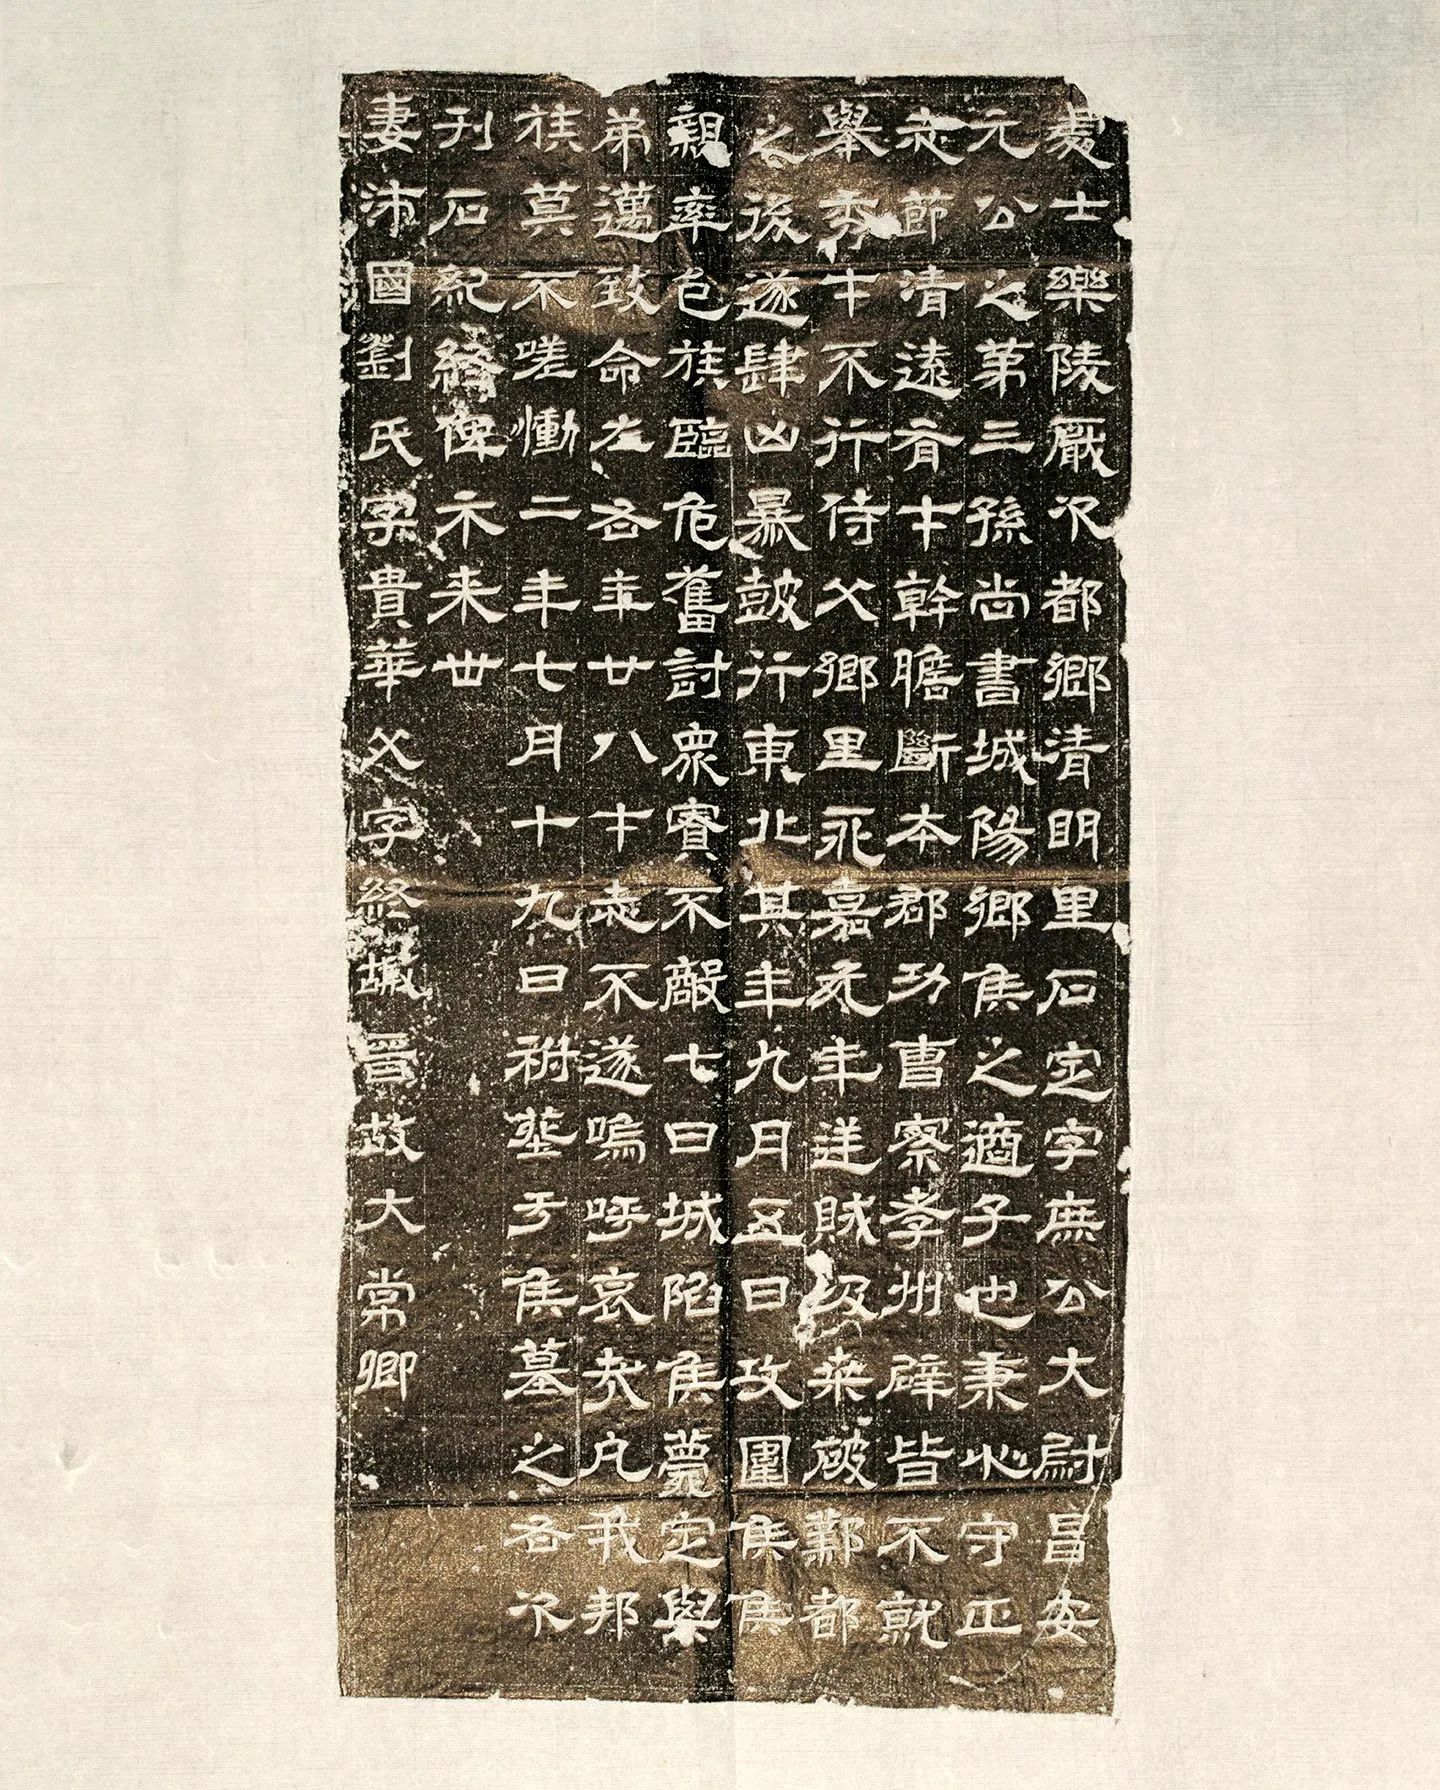 處士樂陵厭次都鄉清明里石定字庶公大尉昌安
元公之第三孫尚書城陽鄉侯之適子也秉心守正
志節清遠有才幹膽斷本郡功曹察孝州辟皆不就
舉秀才不行侍父鄉里永嘉元年逆賊汲桑破鄴都
之後遂肆凶暴鼓行東北其年九月五日攻圍侯侯
親率邑族臨危奮討衆寡不敵七日城陷侯薨定與
弟邁致命左右年廿八才志不遂嗚呼哀哉凡我邦
族莫不嗟慟二年七月十九日祔葬于侯墓之右次
刊石紀終俾示来世
妻沛國劉氏字貴華父字終嘏晉故大常卿